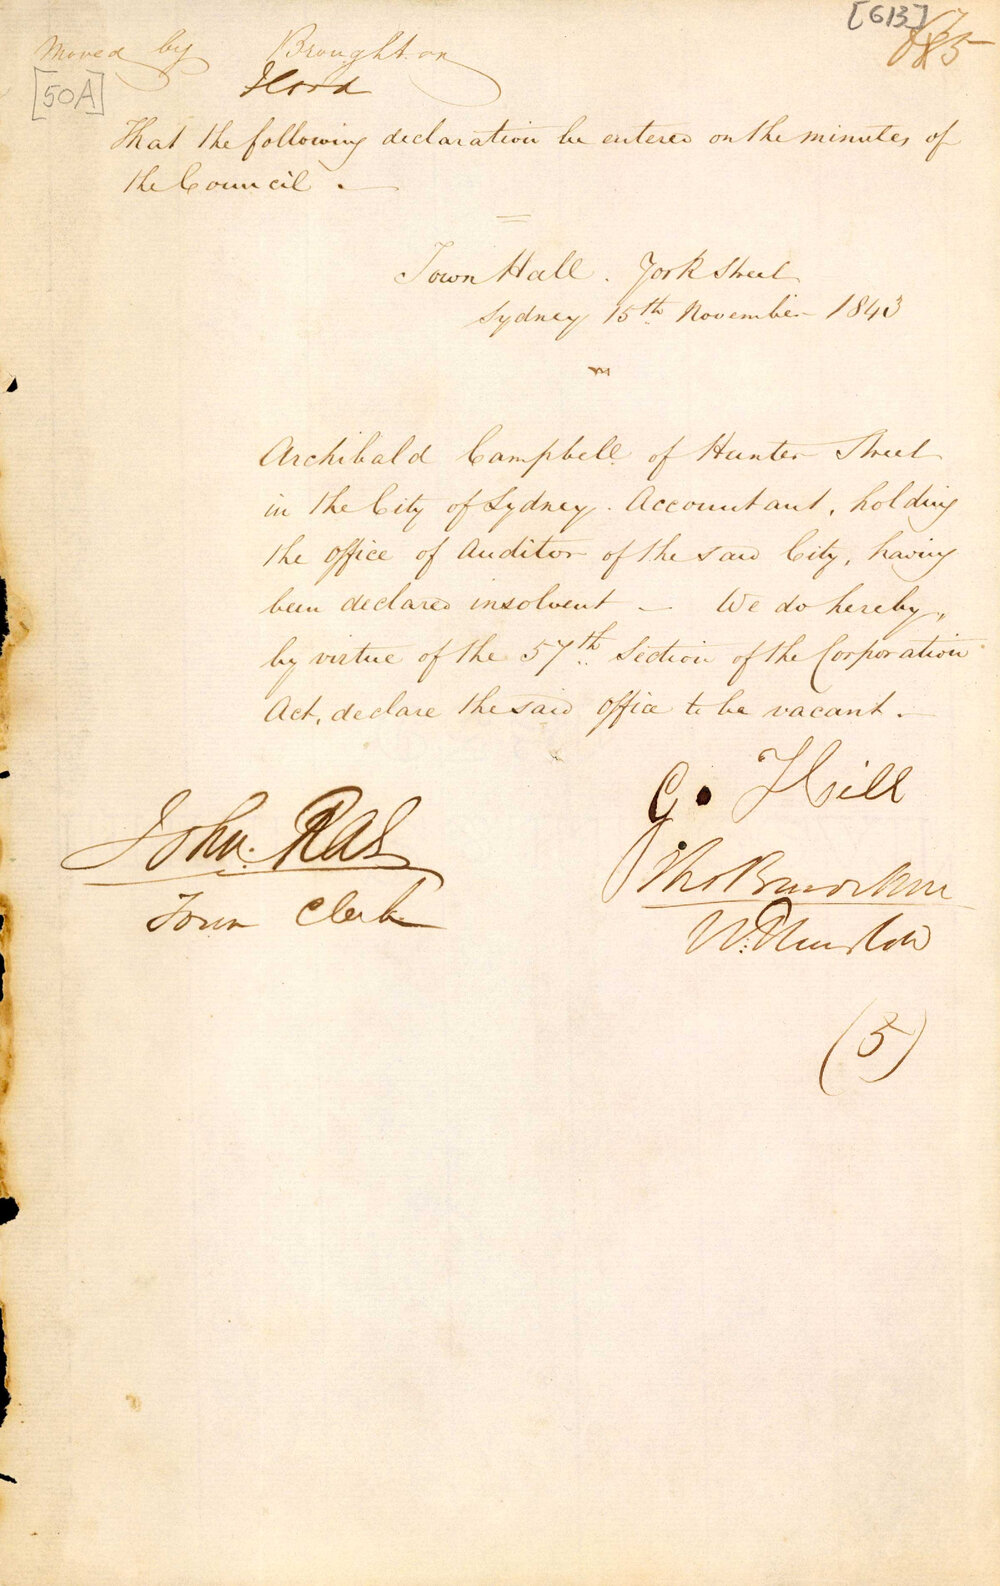 [613]
Moved by Broughton
[50A]
Flood
That the following declaration be entered on the minutes of
the Council.
Town Hall. York Street
Sydney 15th November 1843
Archibald Campbell of Hunter Street
in the City of Sydney. Accountant, holding
the office of Auditor of the said City, having
been declared insolvent — We do hereby,
by virtue of the 57th Section of the Corporation
Act, declare the said office to be vacant.
G. Hill
John Rae
Town Clerk
Tho Broughton
W. Thurlow
(5)